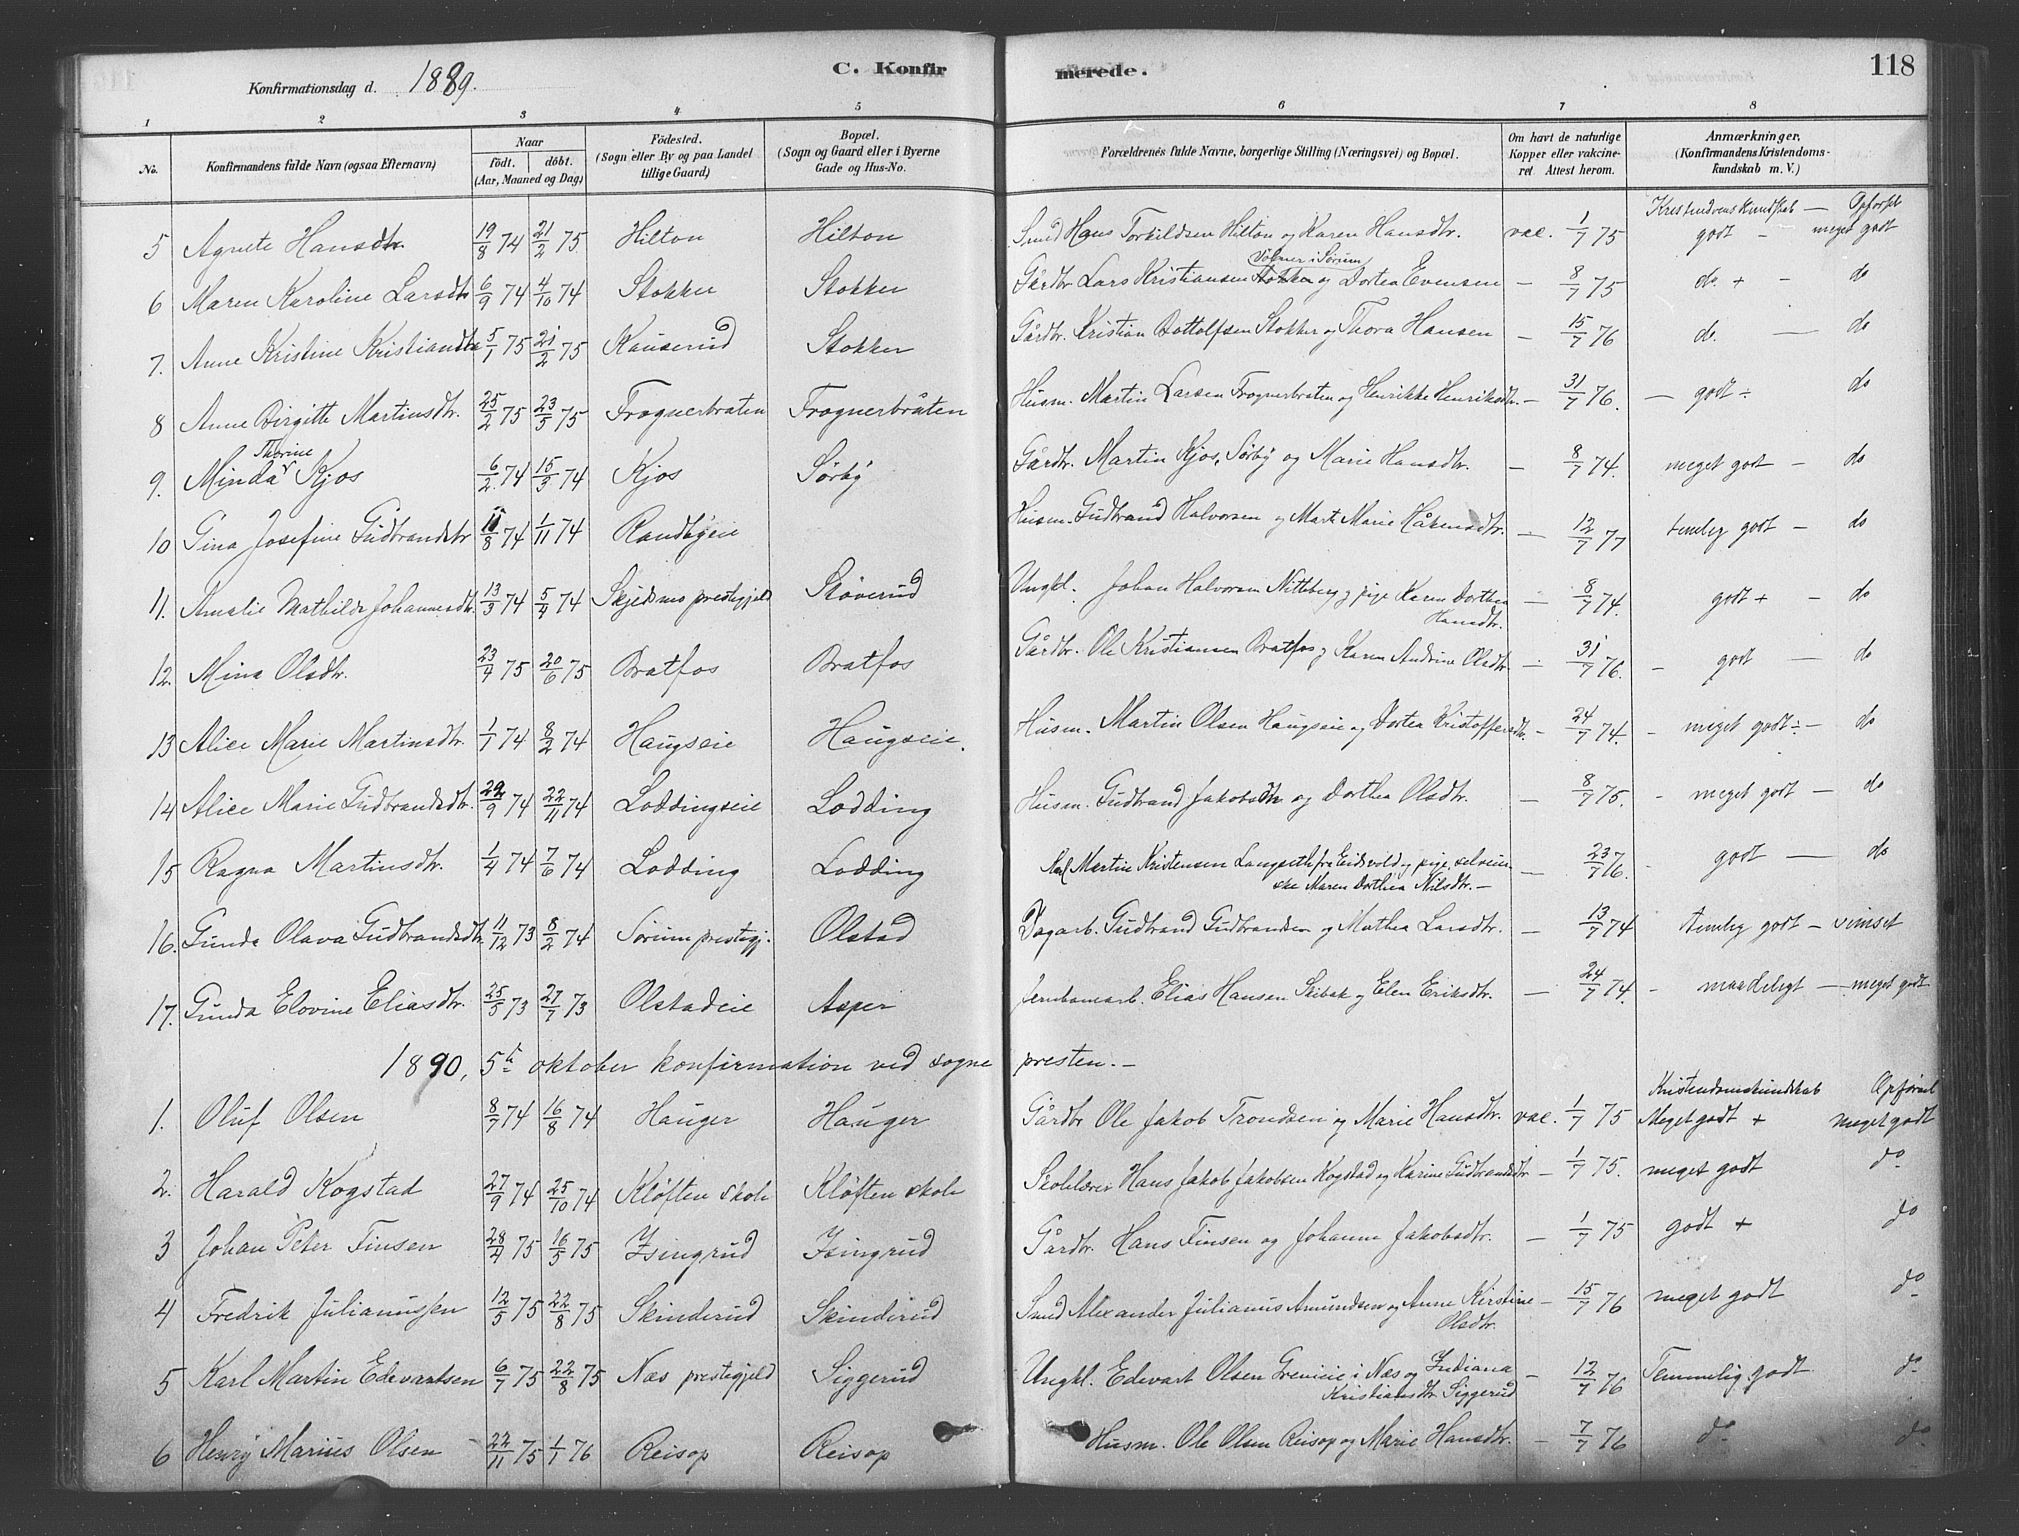 Konfirmationsdag d. 1889. C. Konfirmerede. 118
1 2 3 4 5 6 7 8
No. Konfirmandens fulde Navn (ogsaa Efternavn) Naar födt. döbt. (Aar, Maaned og Dag) Födested. (Sogn eller By og paa Landet tillige Gaard) Bopæl. (Sogn og Gaard eller i Byerne Gade og Hus-No. Forældrenes fulde Navne, borgerlige Stilling (Næringsvei) og Bopæl. Om havt de naturlige Kopper eller vakcineret. Attest herom. Anmærkninger, (Konfirmandens Kristendomskundskab m. V.)
Kristendomskundskab — Opførsel
5 Agnete Hansdtr 19/8 74 21/2 75. Hilton Hilton Smed Hans Torkildsen Hilton og Karen Hansdtr. vac. 1/7 75 godt - meget godt
6 Maren Karoline Larsdtr 6/9 74 4/10 74 Stokker Stokker Gårdbr Lars Kristiansen Stokker og Dortea Evensen — 8/7 75 do + - do
7. Anne Kristine Kristiansdtr 5/1 75 21/2 75 Kauserud Stokker Gårdbr. Kristian Bottolfsen Stokker og Thora Hansen — 15/7 76 do. — do
8 Anne Birgitte Martinsdtr. 25/2 75 23/5 75 Trognerbraten Frognerbråten Husm. Martin Larsen Frognerbraten og Henrikke Henriksdtr. — 31/7 76. — godt ÷ do
Thorine
9. Minda Kjos 6/2 74 15/3 74 Kjos Sörby Gårdbr. Martin Kjos, Sörby og Marie Hansdtr. — 8/7 74. meget godt — do
10 Gina Josefine Gudbrandsdtr 11/8 74 1/11 74 Randbyeie Husm. Gudbrand Halvorsen og Mart Marie Håkensdtr. — 12/7 77 temlig godt — do
11. Amalie Mathilde Johannesdtr. 13/3 74 5/4 74 Skjedsmo prestegjeld Støverud Ungkl. Johan Halvorsen Nitteberg og pige Karen Dorthea Hansdtr. — 8/7 74. godt + — do
12. Mina Olsdtr. 23/4 75 20/6 75 Bratfos Bratfos Gårdbr. Ole Kristiansen Bratfos og Karen Andrine Olsdtr — 31/7 76. — godt — do
13 Alice Marie Martinsdtr. 1/1 74 8/2 74 Haugseie Haugseie. Husm. Martin Olsen Haugseie og Dortea Kristoffersdtr. — 24/7 74. — meget godt ÷ — do
14 Alice Marie Gudbrandsdtr. 22/9 74 22/11 74 Loddingseie Lodding Husm. Gudbrand Jakobsen og Dorthea Olsdtr. — 8/7 75. - meget godt — do
15 Ragna Martinsdtr. 1/4 74 7/6 74 Lodding Lodding Karl Martin Kristensen Langseth fra Eidsvold og pige, selveierske Maren Dorthea Nilsdtr. — 23/7 76. - godt — do
16. Gunda Olava Gudbrandsdtr. 11/12 73 8/2 74 Sörum prestegj. Olstad Dagarb. Gudbrand Gudbrandsen og Mathea Larsdtr. — 13/7 74 temlig godt —
17. Gunda Elovine Eliasdtr. 25/5 73 27/7 73 Olstadeie Asper Jernbanearb. Elias Hansen Skibak og Elen Eriksdtr. — 24/7 74. - maadeligt — meget godt
1890, 5te oktober konfirmation ved sognepresten. —
Kristendomskundskab Opførsel
1. Oluf Olsen 8/7 74 16/8 74 Hauger Hauger Gårdbr Ole Jakob Trondsen og Marie Hansdtr. vac. 1/7 75 Meget godt + meget godt
2. Harald Kogstad 27/9 74 25/10 74 Kløften skole Kløften skole Skolelærer Hans Jakob Jakobsen Kogstad og Karine Gudbrandsdtr — 1/7 75. meget godt do
3 Johan Peter Finsen 28/4 75 16/5 75 Isingrud Isingrud Gårdbr. Hans Finsen og Johanne Jakobsdtr. — 1/7 75 godt + do
4 Fredrik Julianussen 12/5 75 22/8 75 Skinderud Skinderud Smed Alexander Julianus Amundsen og Anne Kirstine Olsdtr. — 15/7 76 meget godt do
5 Karl Martin Edevartsen 6/7 75 22/8 75 Næs prestegjeld Siggerud Ungkl. Edevart Olsen i Næs og Indiana Kristiansdtr Siggerud — 12/7 76 Temmelig godt do
6 Henry Marius Olsen 22/11 75 1/1 76 Reisop Reisop Husm. Ole Olsen Reisop og Marie Hansdtr. — 7/7 76 do do